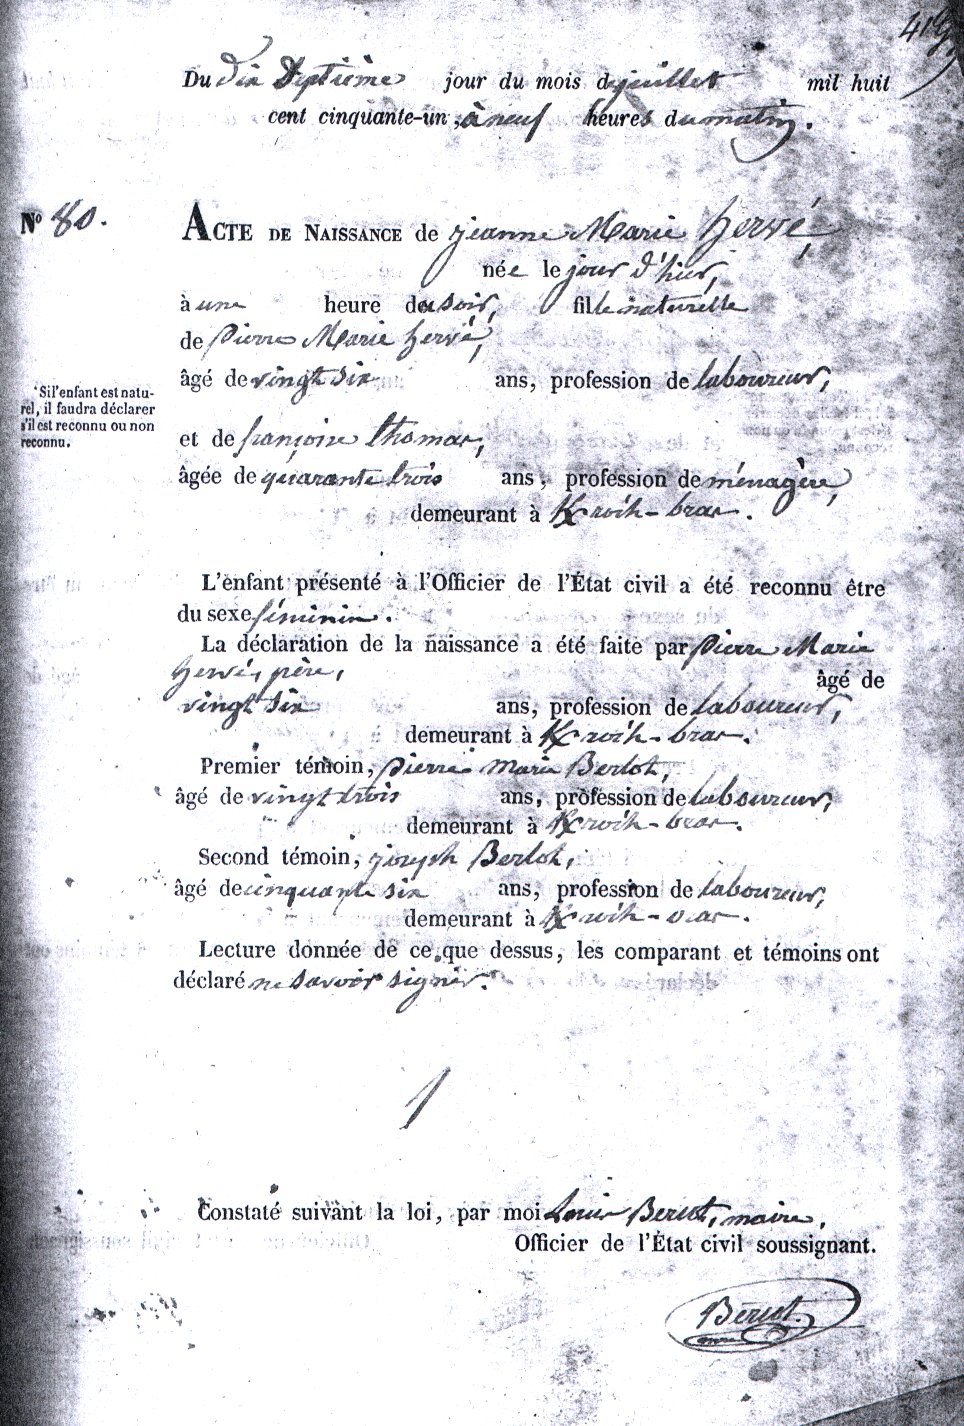 Du dix Septième jour du mois de juillet mil huit
cent cinquante-un, à neuf heures du matin.
No 80.
ACTE DE NAISSANCE de jeanne Marie hervé,
née le jour d'hier,
à une heure du soir, fille naturelle
de Pierre Marie hervé,
âgé de vingt Six ans, profession de laboureur,
Si l'enfant est natu-
rel, il faudra déclarer
s'il est reconnu ou non
reconnu.
et de françoise thomas,
âgée de quarante trois ans, profession de ménagère,
demeurant à bras.
L'enfant présenté à l'Officier de l'État civil a été reconnu être
du sexe féminin.
La déclaration de la naissance a été faite par Pierre Marie
hervé, père, âgé de
vingt Six ans, profession de laboureur,
demeurant à bras.
Premier témoin, Pierre Marie Berlot,
âgé de vingt trois ans, profession de laboureur,
demeurant à bras.
Second témoin, joseph Berlot,
âgé de cinquante six ans, profession de laboureur,
demeurant à
Lecture donnée de ce que dessus, les comparant et témoins ont
déclaré ne savoir signer.
Constaté suivant la loi, par moi Louis maire,
Officier de l'État civil soussignant.